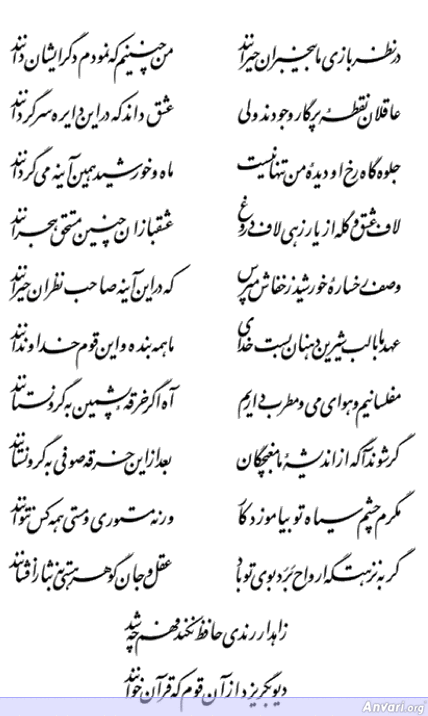 در نظربازی ما بیخبران حیرانند من چنینم که نمودم دگر ایشان دانند
عاقلان نقطهٔ پرگار وجودند ولی عشق داند که در این دایره سرگردانند
جلوه گاه رخ او دیدهٔ من تنها نیست ماه و خورشید همین آینه می گردانند
لاف عشق و گله از یار زهی لاف دروغ عشقبازان چنین مستحق هجرانند
وصف رخسارهٔ خورشید ز خفاش مپرس که در این آینه صاحب نظران حیرانند
عهد ما با لب شیرین دهنان بست خدای ما همه بنده و این قوم خداوندانند
مفلسانیم و هوای می و مطرب داریم آه اگر خرقه پشمین به گرو نستانند
گر شوند آگه از اندیشهٔ ما مغبچگان بعد از این خرقه صوفی به گرو نستانند
مگرم چشم سیاه تو بیاموزد کار ورنه مستوری و مستی همه کس نتوانند
گر به نزهتگه ارواح برد بوی تو باد عقل و جان گوهر هستی به نثار افشانند
زاهد ار رندی حافظ نکند فهم چه شد
دیو بگریزد از آن قوم که قرآن خوانند
Anvari.org